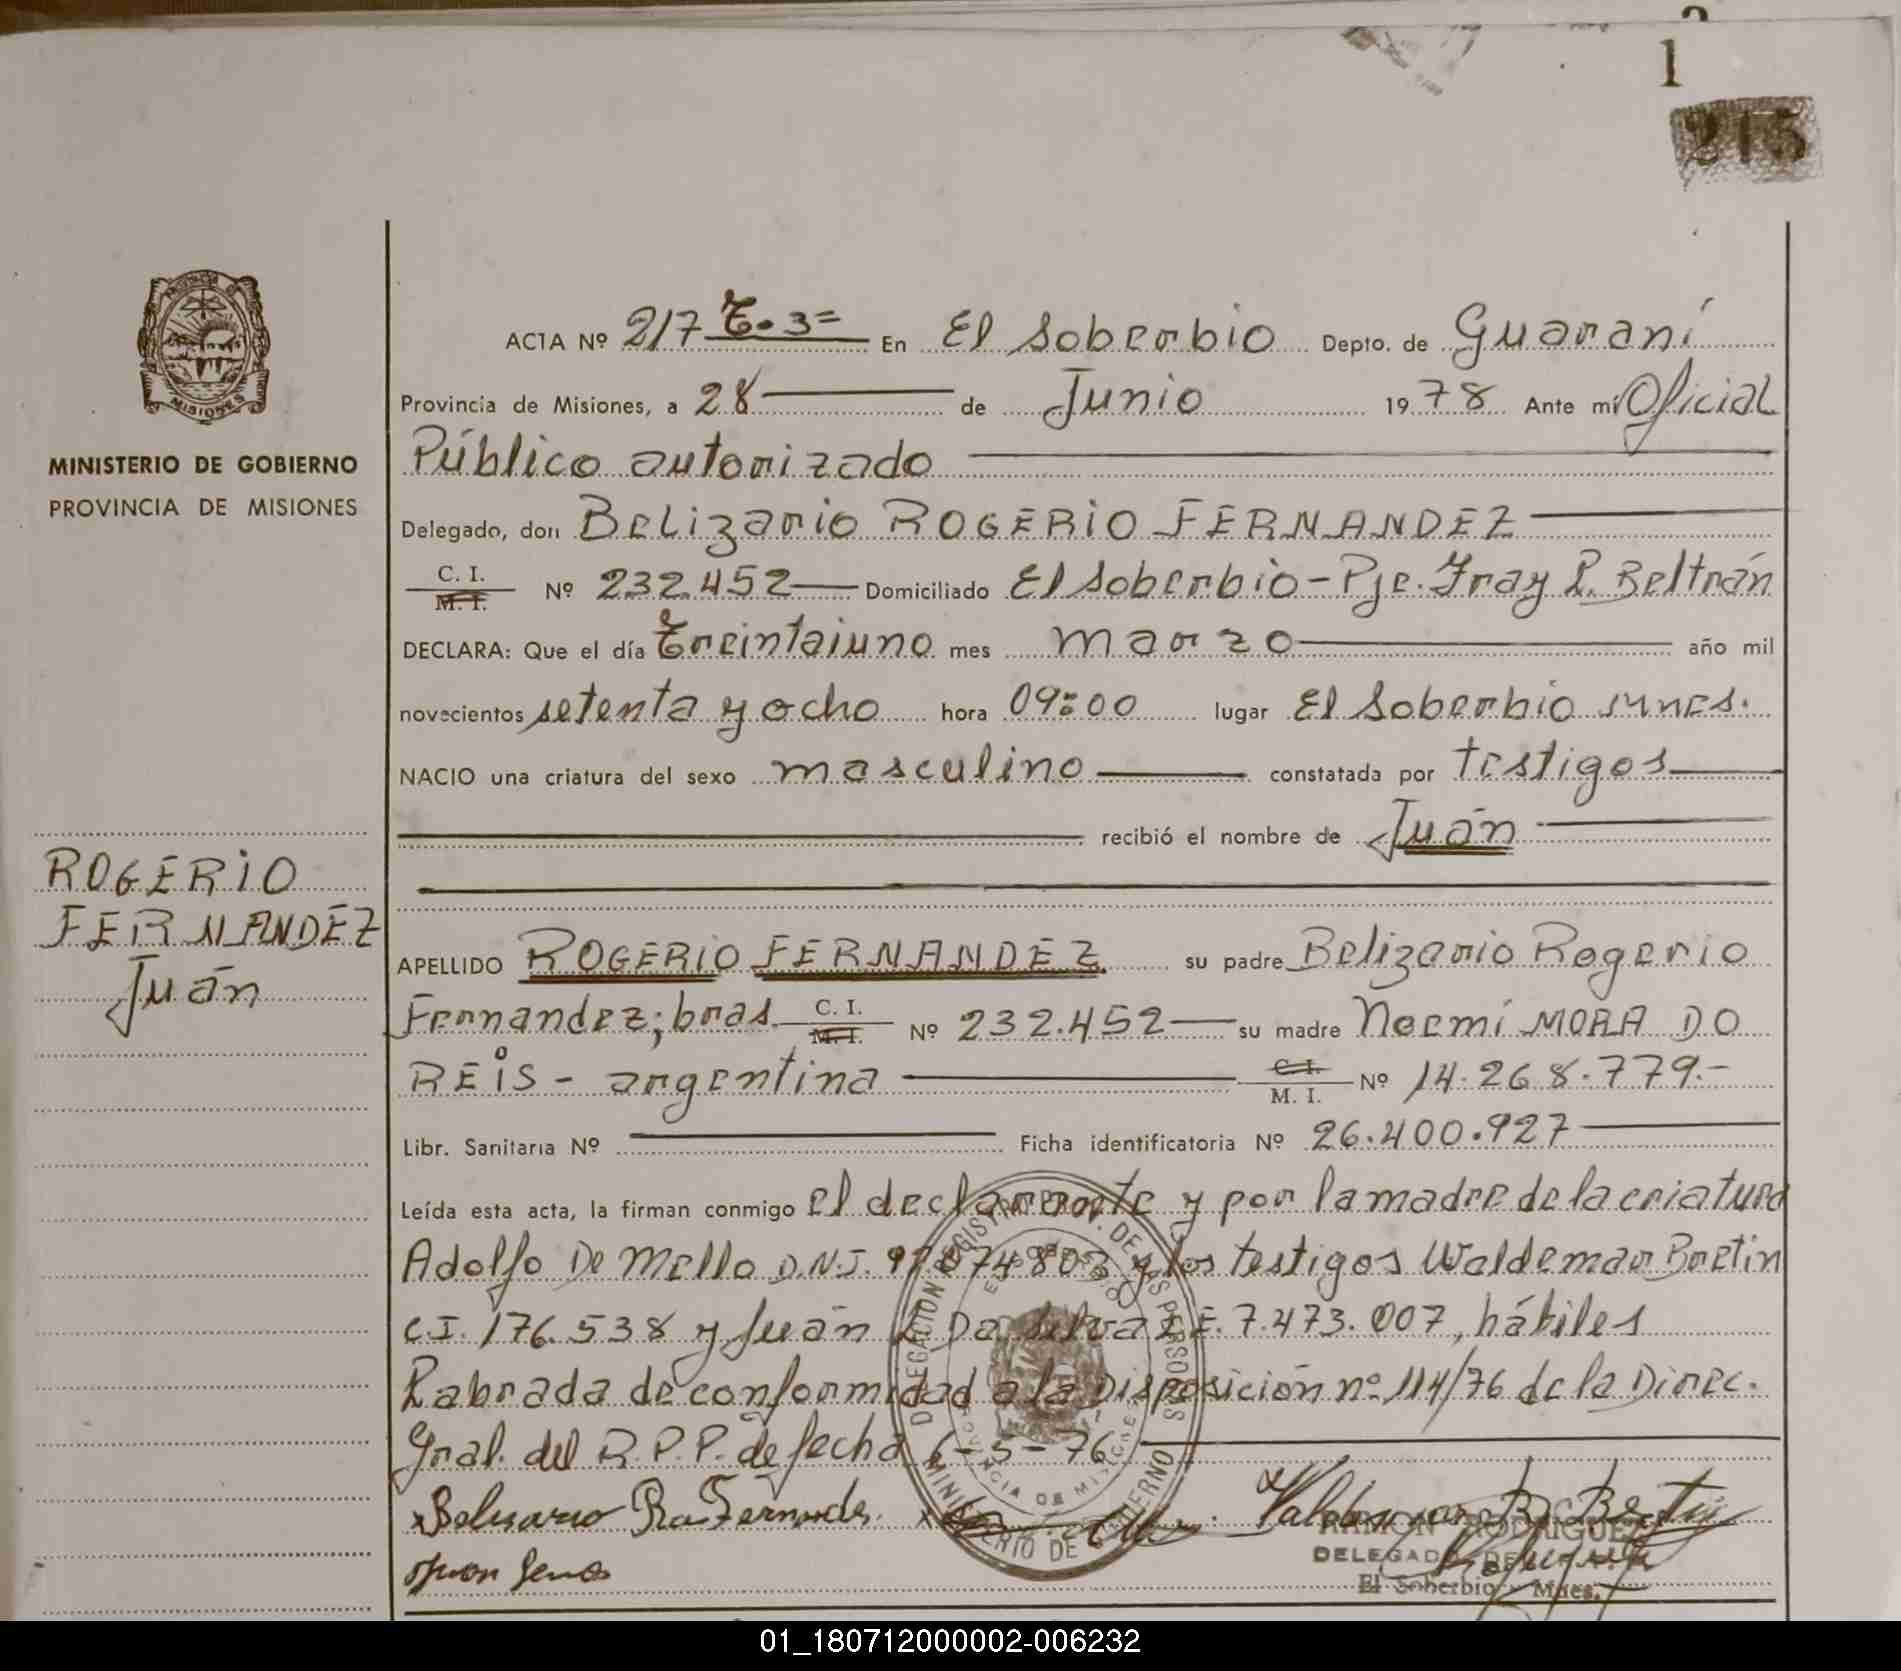 1
215
ACTA Nº 217 T.3= En El Soberbio Depto. de Guaraní
Provincia de Misiones, a 28 de Junio 1978 Ante mí Oficial
Público autorizado
Delegado, don Belizario ROGERIO FERNANDEZ
C. I. M. I. Nº 232.452 Domiciliado El Soberbio - Pje. Fray L. Beltrán
DECLARA: Que el día Treintaiuno mes marzo año mil
novecientos setenta y ocho hora 09:00 lugar El Soberbio
NACIO una criatura del sexo masculino constatada por testigos
recibió el nombre de Juán
APELLIDO ROGERIO FERNANDEZ su padre Belizario Rogerio
Fernandez; bras. C. I. M. I. Nº 232.452 su madre Noemí MORA DO
REIS - argentina C. I. M. I. Nº 14.268.779.-
Libr. Sanitaria Nº Ficha identificatoria Nº 26.400.927
Leída esta acta, la firman conmigo el declarante y por la madre de la criatura
Adolfo De Mello D.N.I. y los testigos Waldemar Bretin
C.I. 176.538 y Juán L. Da Silva L.E. 7.473.007, hábiles
Labrada de conformidad a la Disposición nº 114/76 de la Direc.
Gral. del R.P.P. de fecha 6-5-76
RAMON RODRIGUEZ
DELEGADO
El Soberbio - Mnes.
DELEGACION REGISTRO PROV. DE LAS PERSONAS
EL SOBERBIO
PROVINCIA DE MISIONES
MINISTERIO DE GOBIERNO
MISIONES
MINISTERIO DE GOBIERNO
PROVINCIA DE MISIONES
ROGERIO
FERNANDEZ
Juán
01_180712000002-006232